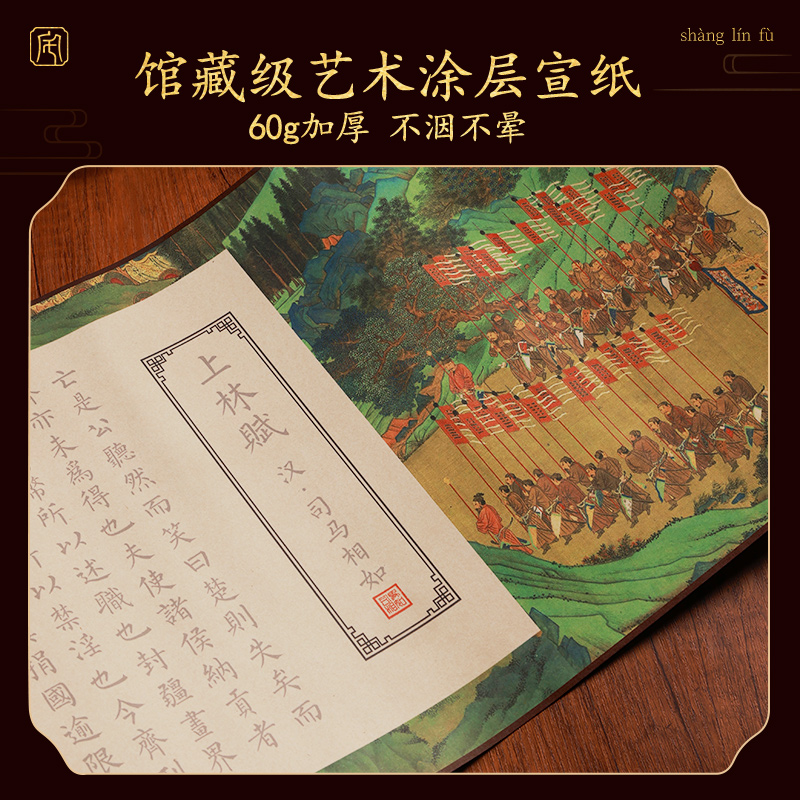 shàng lín fù
馆藏级艺术涂层宣纸
60g加厚 不洇不晕
上林賦 汉·司马相如
亡是公聽然而笑曰楚則失矣而
亦未為得也夫使諸侯納貢者
幣所以述職也封疆畫界
以禁淫也今齊
捐國逾限